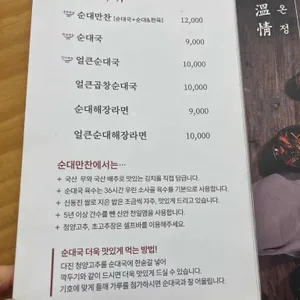 순대만찬 [순대국+순대&편육] 12,000
순대국 9,000
얼큰순대국 10,000
얼큰곱창순대국 10,000
순대해장라면 9,000
얼큰순대해장라면 10,000
순대만찬에서는…
+ 국산 무와 국산 배추로 맛있는 김치를 직접 담급니다.
+ 순대국 육수는 36시간 우린 소사골 육수를 기본으로 사용합니다.
+ 신동진 쌀로 지은 밥은 조금씩 자주, 맛있게 드리고 있습니다.
+ 5년 이상 간수를 뺀 신안 천일염을 사용합니다.
+ 청양고추, 초고추장은 셀프바를 이용해주세요.
순대국 더욱 맛있게 먹는 방법!
다진 청양고추를 순대국에 한술갈 넣어
깍두기와 같이 드시면 더욱 맛있게 드실 수 있습니다.
기호에 맞게 들깨 가루를 첨가하시면 순대국과 잘 어울립니다.
溫情
온정